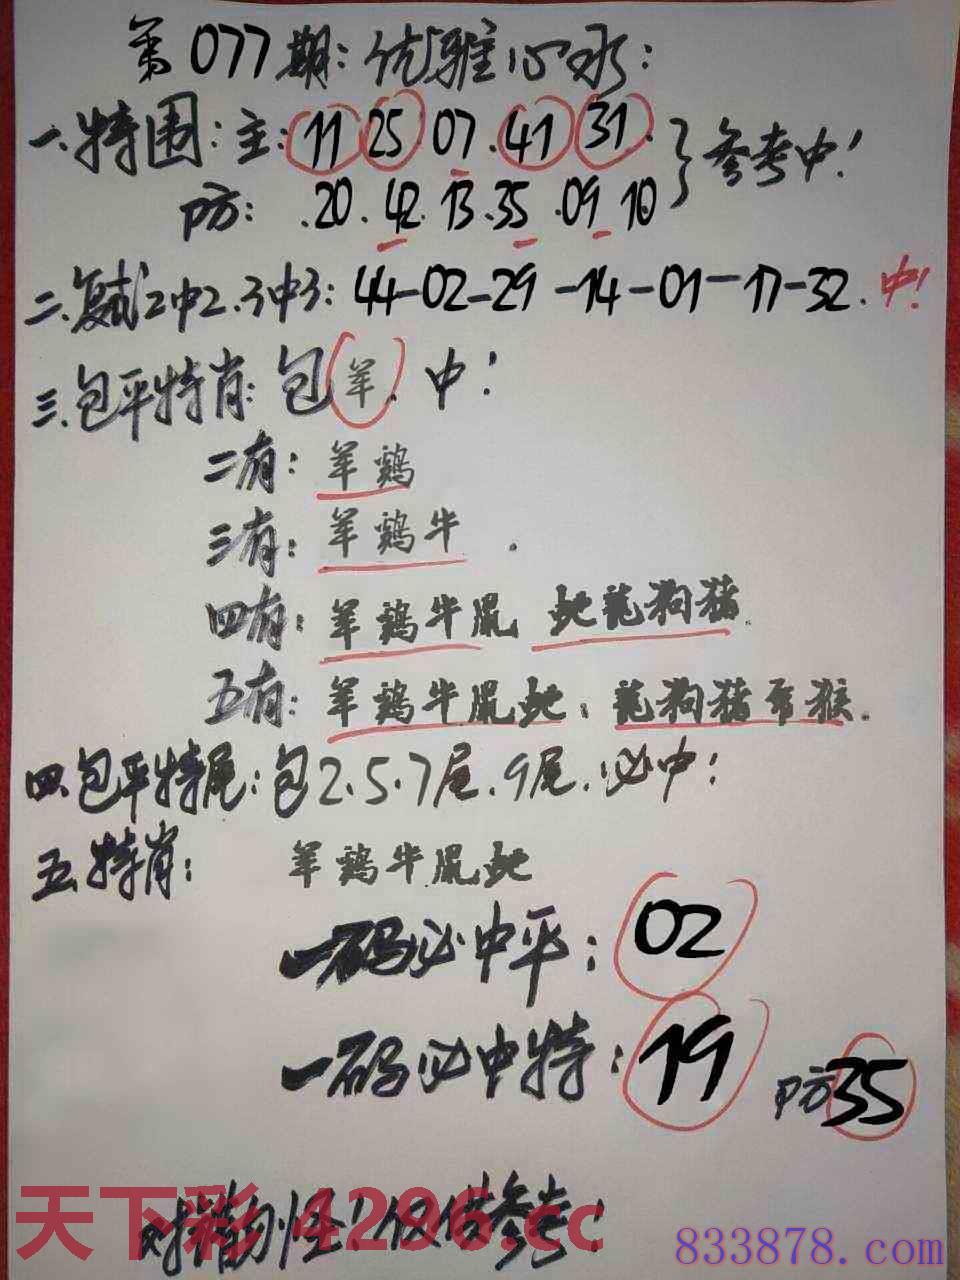 第077期:优雅心水:
一.特围:主:11 25.07.41 31.
防:.20.42.13.35.09 10
}参考中!
二.复试2中2.3中3:44-02-29-14-01-17-32.中!
三.包平特肖:包羊.中!
二有:羊鸡
三有:羊鸡牛.
四有:羊鸡牛鼠 蛇龍狗猪.
五有:羊鸡牛鼠蛇:龍狗猪 猴.
四.包平特尾:包2.5.7尾.9尾.必中!
五.特肖:羊鸡牛.鼠蛇
一码必中平:02
一码必中特:19 防35
天下彩 4296.cc
对错勿怪!仅供参考!
833878.com